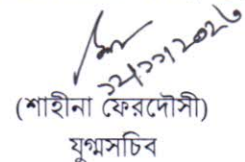 (শাহীনা ফেরদৌসী)
যুগ্মসচিব